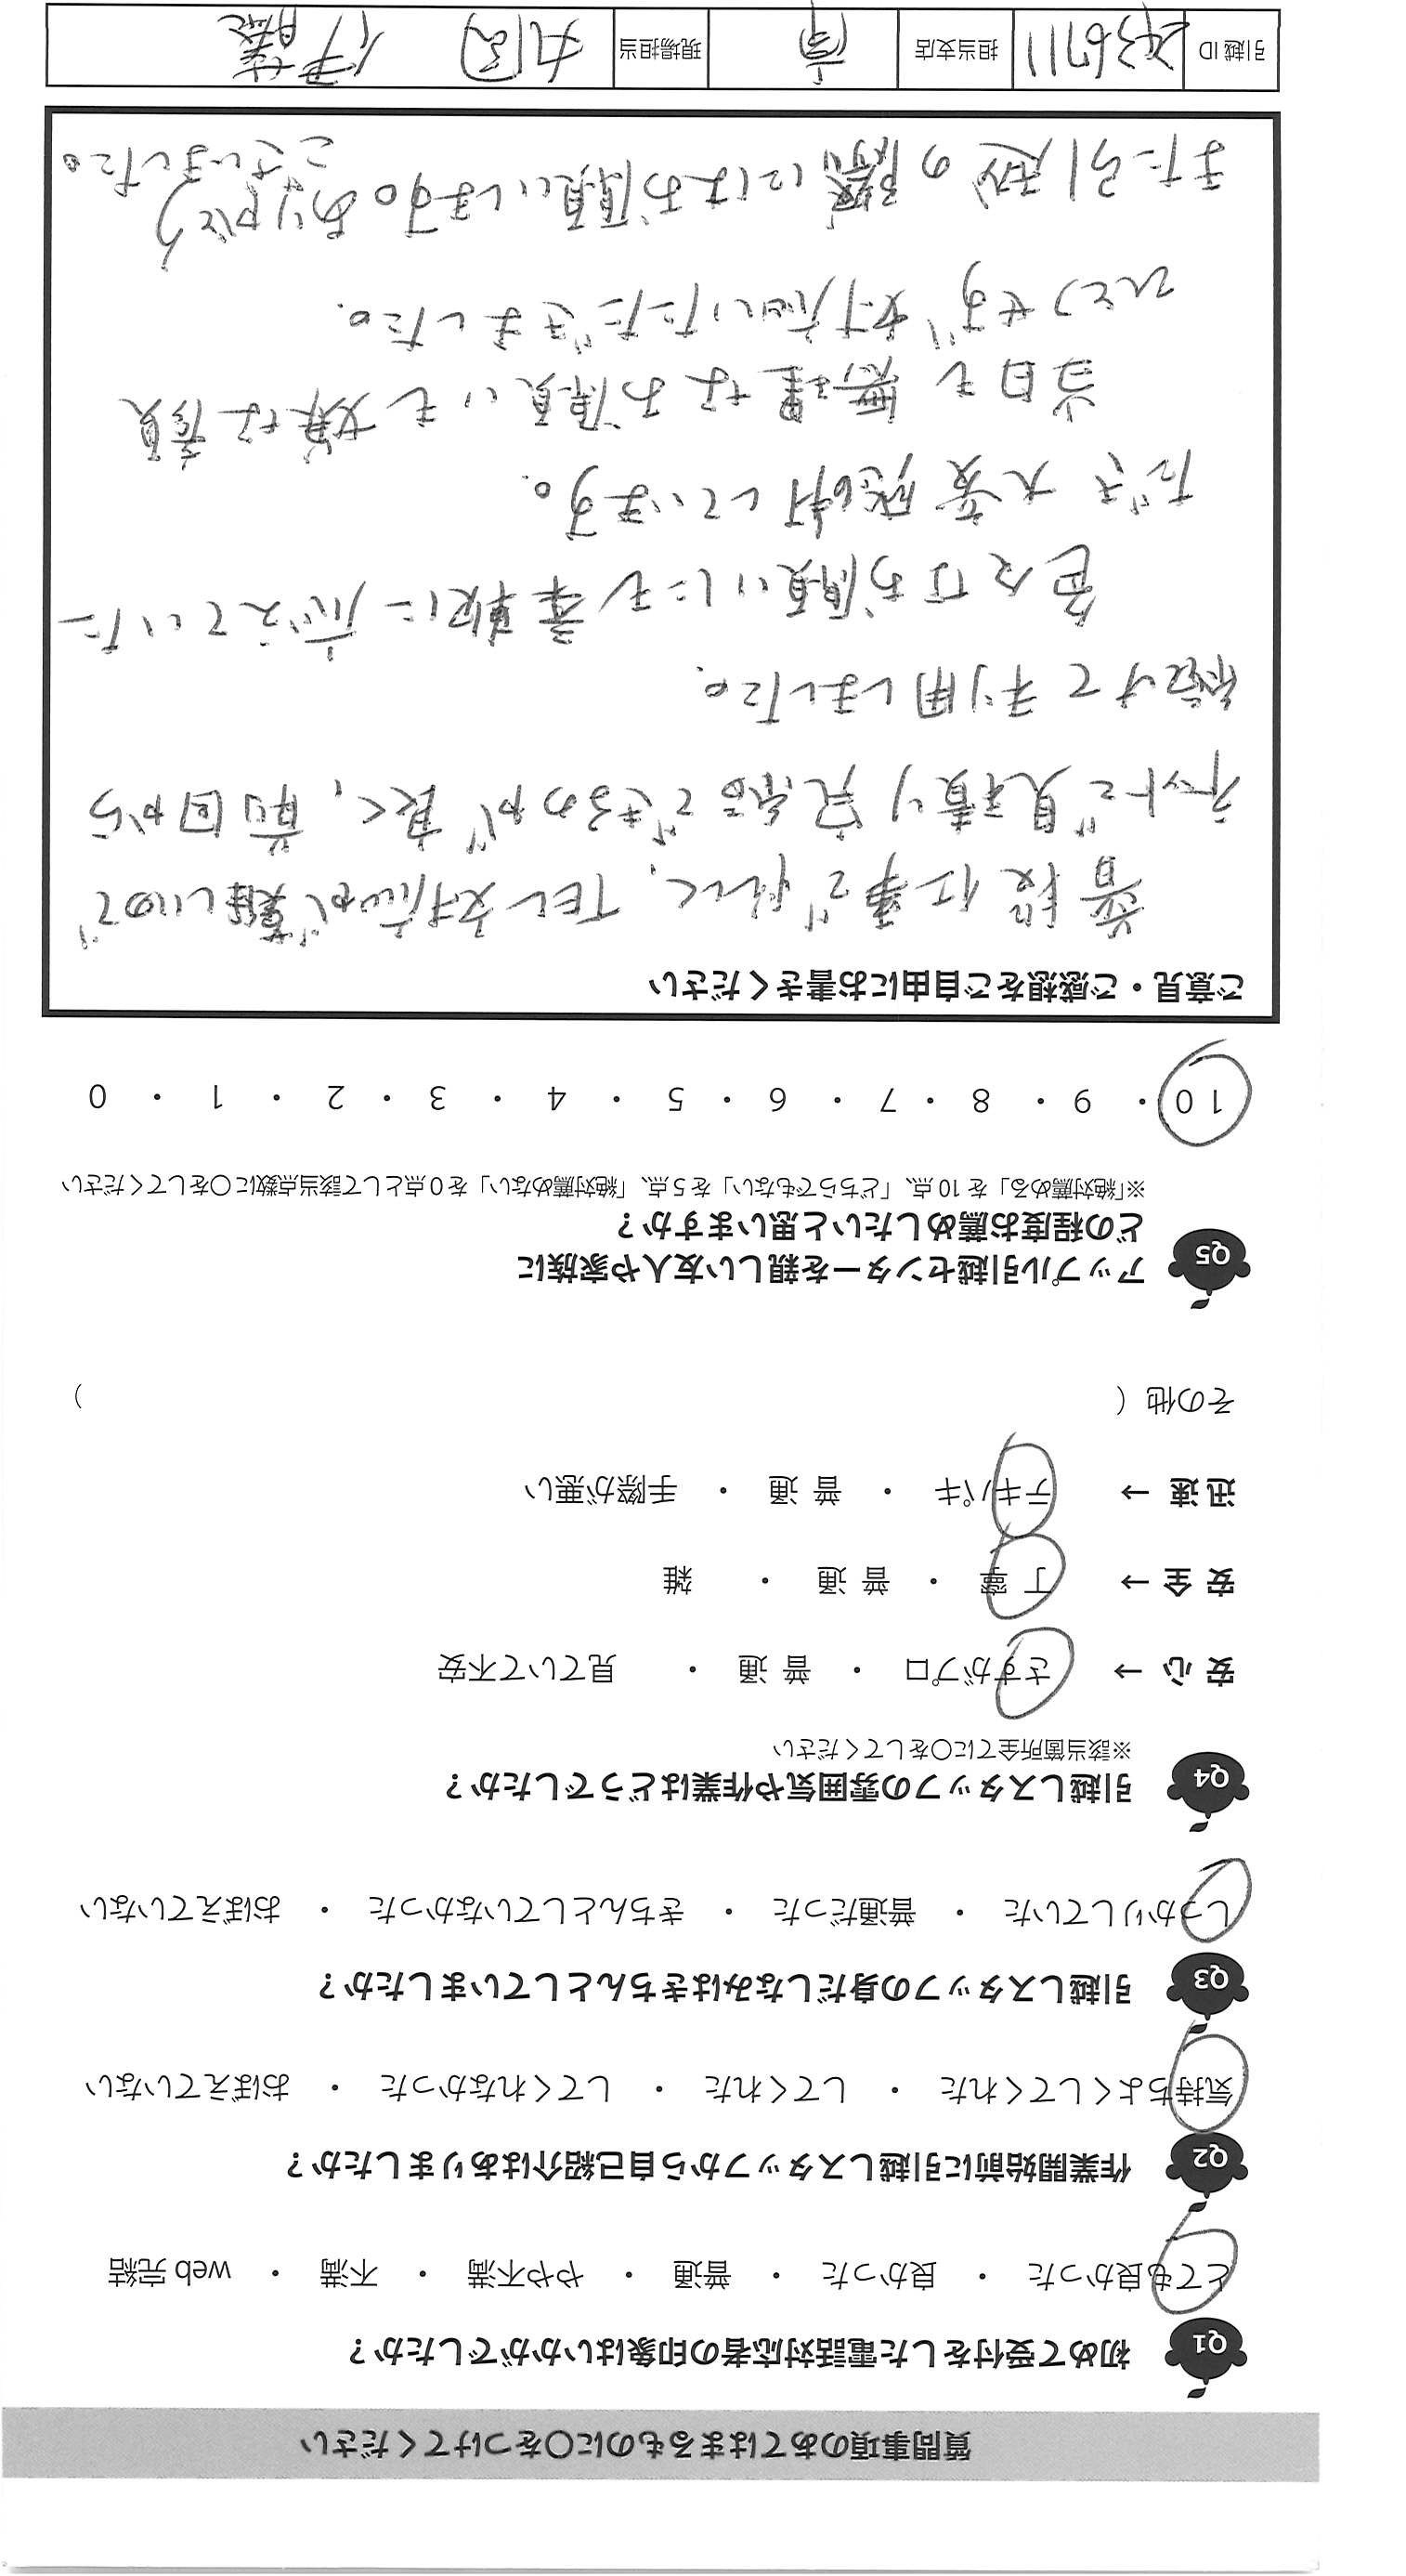 質問事項のあてはまるものに○をつけてください
Q1 初めて受付をした電話対応者の印象はいかがでしたか？
とても良かった ・ 良かった ・ 普通 ・ やや不満 ・ 不満 ・ web完結
Q2 作業開始前に引越しスタッフから自己紹介はありましたか？
気持ちよくしてくれた ・ してくれた ・ してくれなかった ・ おぼえていない
Q3 引越しスタッフの身だしなみはきちんとしていましたか？
しっかりしていた ・ 普通だった ・ きちんとしていなかった ・ おぼえていない
Q4 引越しスタッフの雰囲気や作業はどうでしたか？
※該当箇所全てに○をしてください
安心→ さすがプロ ・ 普通 ・ 見ていて不安
安全→ 丁寧 ・ 普通 ・ 雑
迅速→ テキパキ ・ 普通 ・ 手際が悪い
その他（ ）
Q5 アップル引越センターを親しい友人や家族に
どの程度お薦めしたいと思いますか？
※「絶対薦める」を10点、「どちらでもない」を5点、「絶対薦めない」を0点として該当点数に○をしてください
10 ・ 9 ・ 8 ・ 7 ・ 6 ・ 5 ・ 4 ・ 3 ・ 2 ・ 1 ・ 0
ご意見・ご感想をご自由にお書きください
普段仕事で忙しく、TEL対応が難しいので
ネットで見積り完結できるのが良く、前回から
続けて利用しました。
色々なお願いにも柔軟に応えていた
だき大変感謝しています。
当日も無理なお願いも嫌な顔
ひとつせず対応いただきました。
また引越の際にはお願いします。ありがとう
ございました。
引越ID 担当支店 現場担当 伊藤